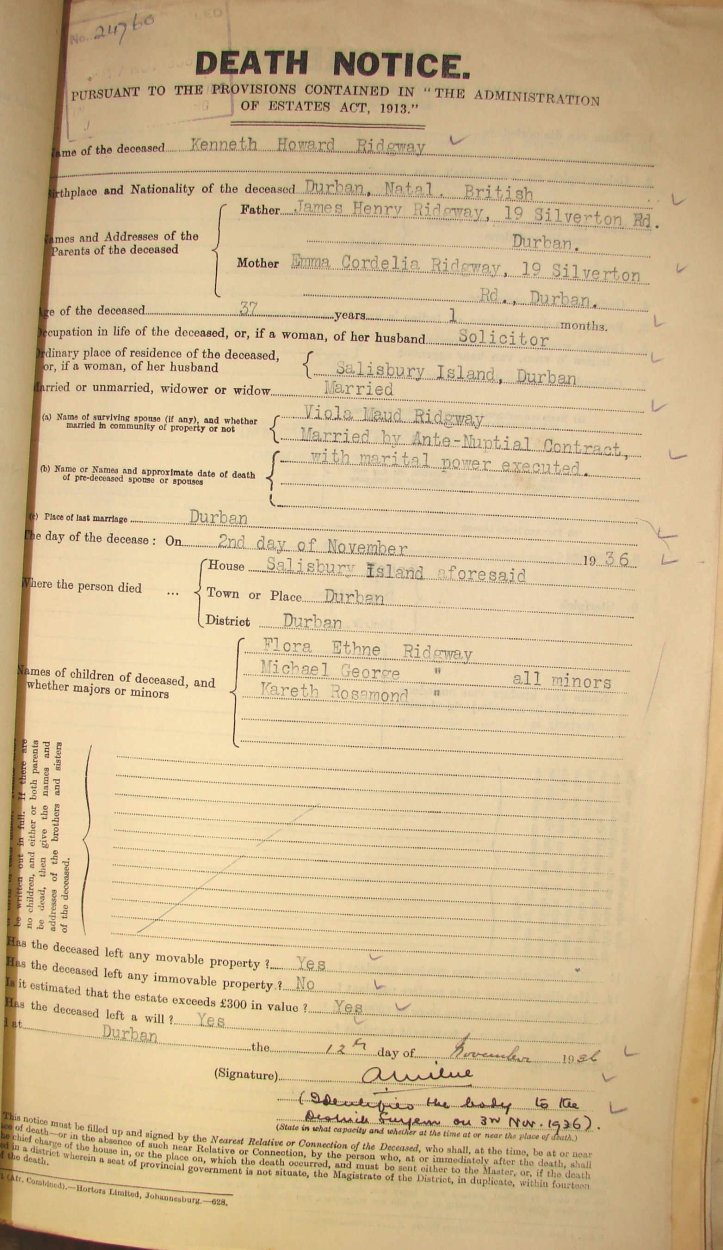 No. 24760
DEATH NOTICE.
PURSUANT TO THE PROVISIONS CONTAINED IN "THE ADMINISTRATION
OF ESTATES ACT, 1913."
ame of the deceased Kenneth Howard Ridgway
irthplace and Nationality of the deceased Durban, Natal. British
ames and Addresses of the Parents of the deceased
Father James Henry Ridgway, 19 Silverton Rd.
Durban.
Mother Emma Cordelia Ridgway, 19 Silverton
Rd., Durban.
ge of the deceased 37 years 1 months.
ccupation in life of the deceased, or, if a woman, of her husband Solicitor
rdinary place of residence of the deceased,
or, if a woman, of her husband Salisbury Island, Durban
arried or unmarried, widower or widow Married
(a) Name of surviving spouse (if any), and whether married in community of property or not
Viola Maud Ridgway
Married by Ante-Nuptial Contract,
with marital power executed.
(b) Name or Names and approximate date of death
of pre-deceased spouse or spouses
(c) Place of last marriage Durban
he day of the decease: On 2nd day of November 1936
here the person died ...
House Salisbury Island aforesaid
Town or Place Durban
District Durban
ames of children of deceased, and
whether majors or minors
Flora Ethne Ridgway
Michael George " all minors
Kareth Rosamond "
be written out in full. If there are
no children, and either or both parents
be dead, then give the names and
addresses of the brothers and sisters
of the deceased.
Has the deceased left any movable property? Yes
Has the deceased left any immovable property? No
Is it estimated that the estate exceeds £300 in value? Yes
Has the deceased left a will? Yes
at Durban the 12th day of November 1936
(Signature)
(Identifies the body to the
District Surgeon on 3rd Nov. 1936).
(State in what capacity and whether at the time at or near the place of death.)
This notice must be filled up and signed by the Nearest Relative or Connection of the Deceased, who shall, at the time, be at or near
of death—or in the absence of such near Relative or Connection, by the person who, at or immediately after the death, shall
chief charge of the house in, or the place on, which the death occurred, and must be sent either to the Master, or, if the death
in a district wherein a seat of provincial government is not situate, the Magistrate of the District, in duplicate, within fourteen
the death.
(Afr. Combined).—Hortors Limited, Johannesburg.—628.